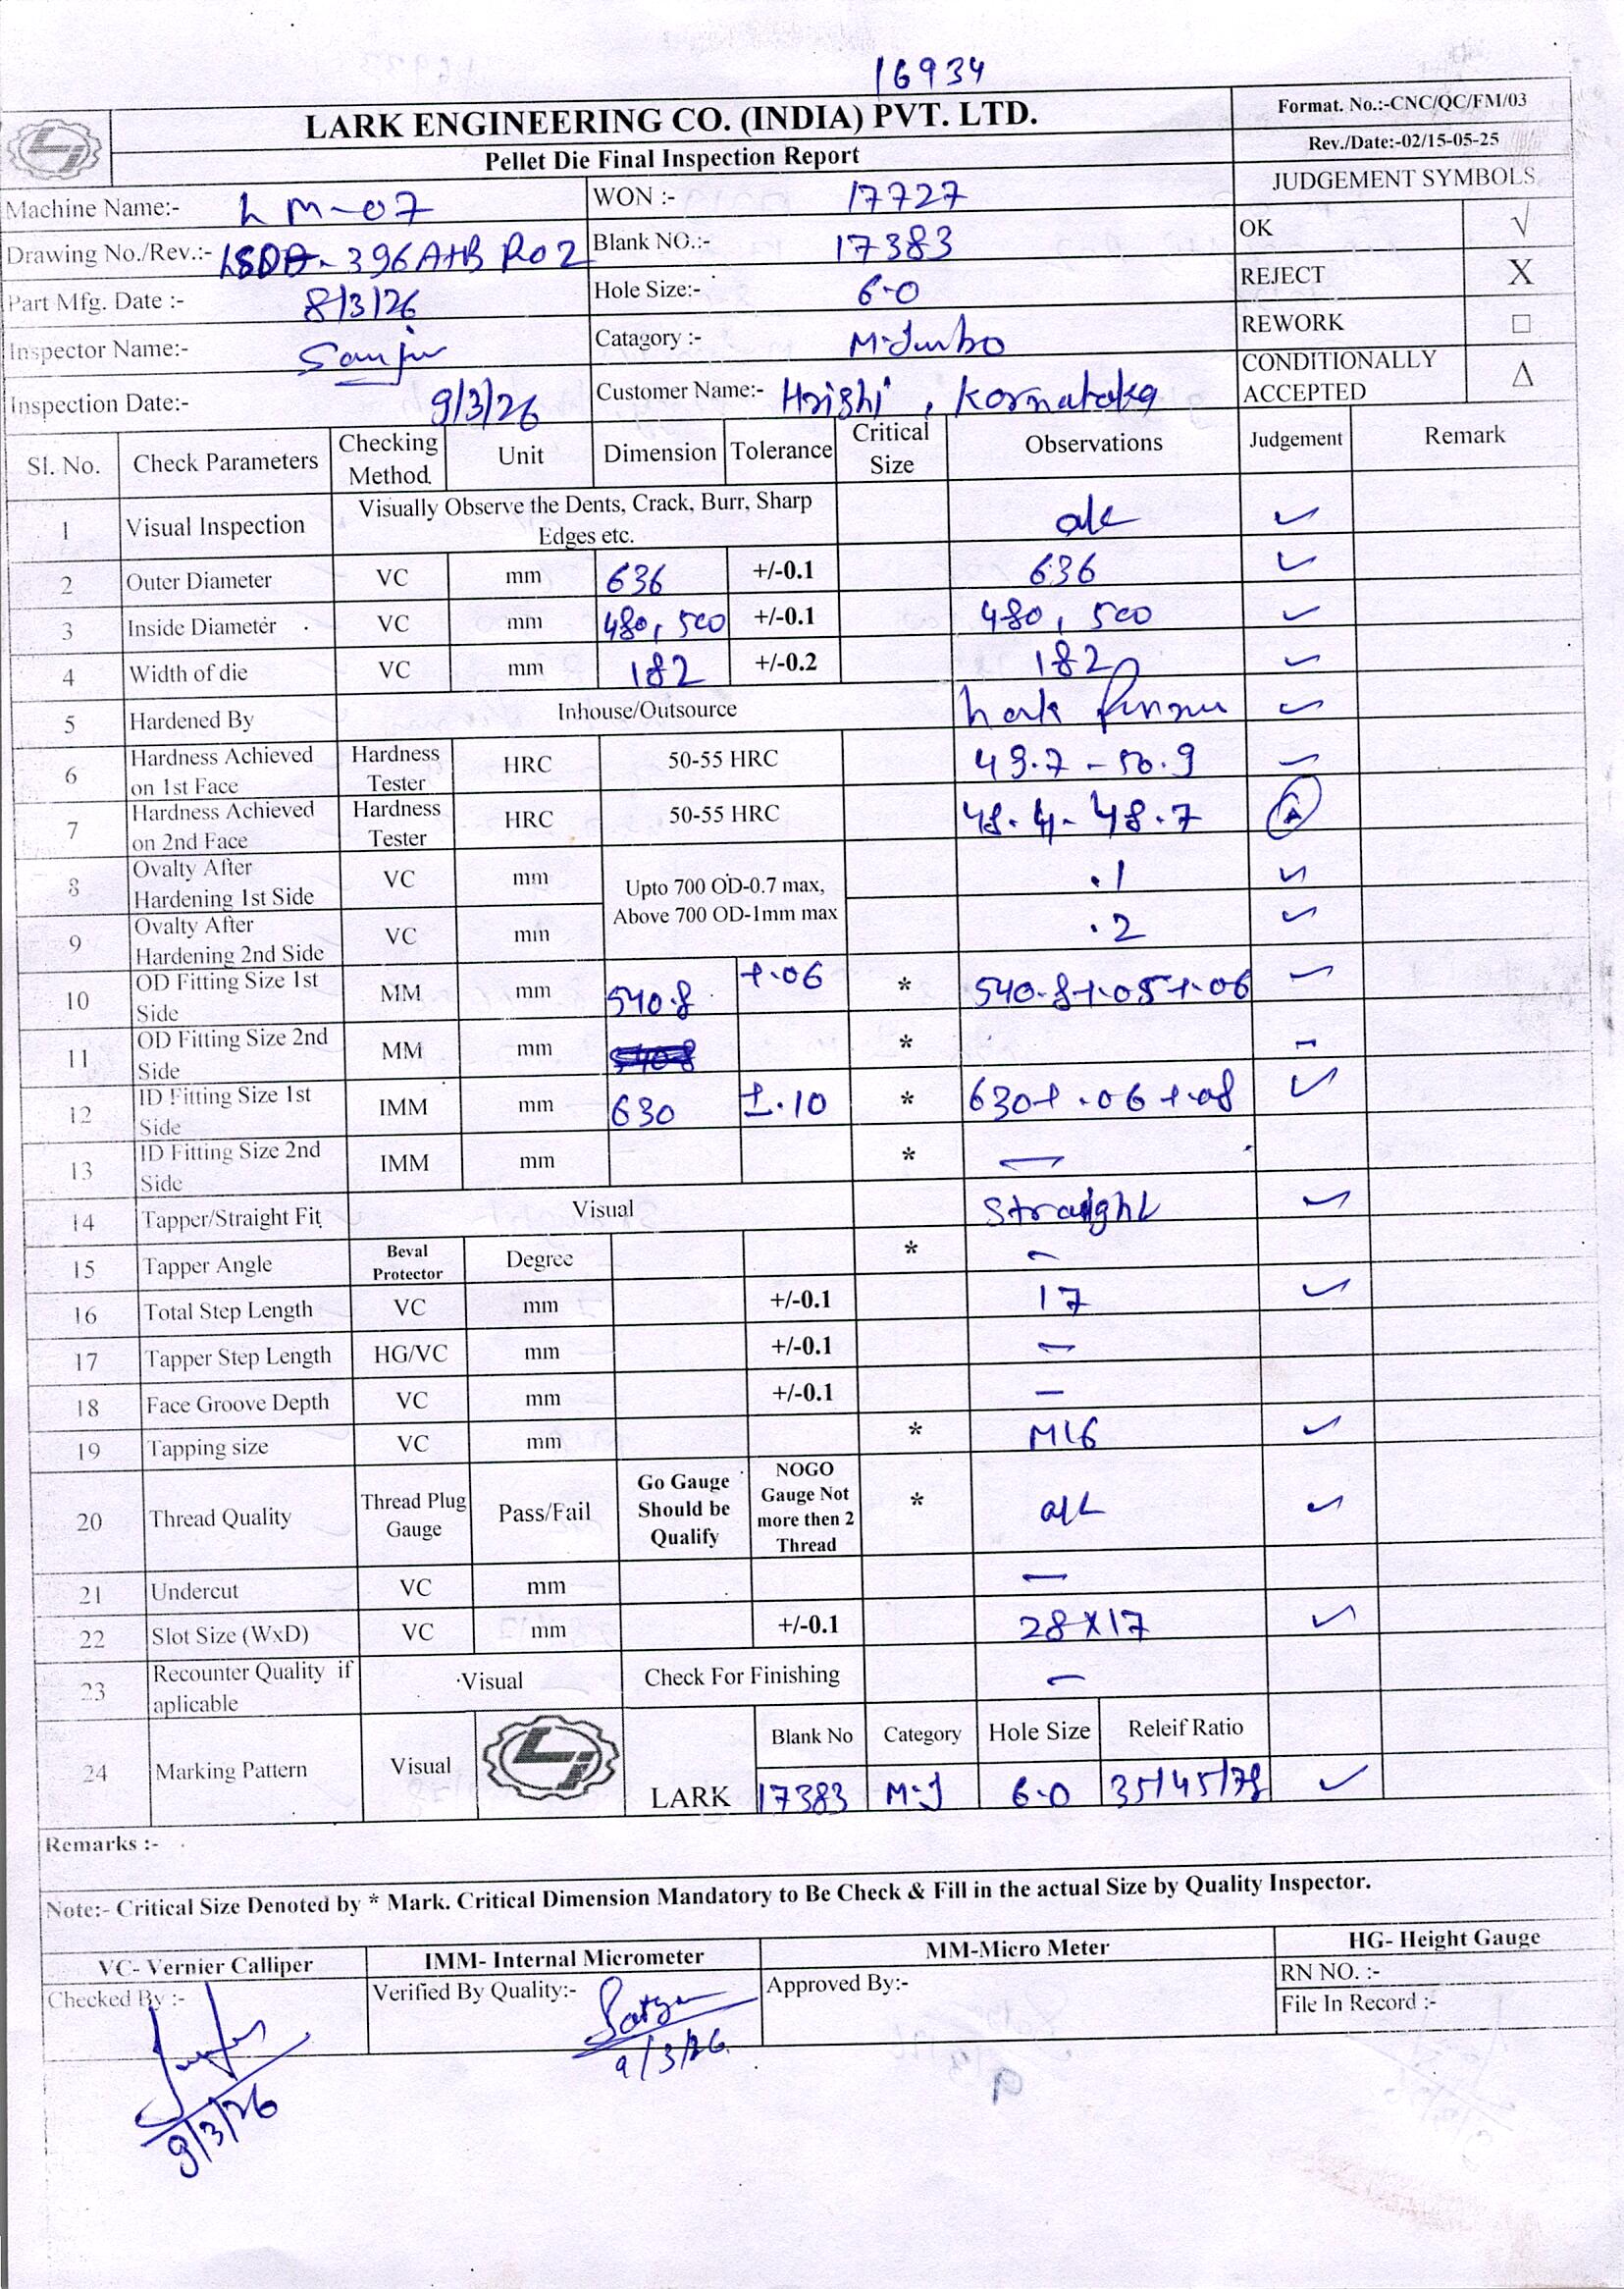 16934
LARK ENGINEERING CO. (INDIA) PVT. LTD.
Pellet Die Final Inspection Report
Format. No.:-CNC/QC/FM/03
Rev./Date:-02/15-05-25
JUDGEMENT SYMBOLS
Machine Name:- LM-07 WON :- 17727
Drawing No./Rev.:- 396A+B R02 Blank NO.:- 17383 OK √
Part Mfg. Date :- 8/3/26 Hole Size:- 6.0 REJECT X
Inspector Name:- Sanju Catagory :- M.Jumbo REWORK □
Inspection Date:- 9/3/26 Customer Name:- Hrishi, Kornataka CONDITIONALLY ACCEPTED Δ
Sl. No. Check Parameters Checking Method Unit Dimension Tolerance Critical Size Observations Judgement Remark
1 Visual Inspection Visually Observe the Dents, Crack, Burr, Sharp Edges etc. ok ✓
2 Outer Diameter VC mm 636 +/-0.1 636 ✓
3 Inside Diameter VC mm 480, 500 +/-0.1 480, 500 ✓
4 Width of die VC mm 182 +/-0.2 182 ✓
5 Hardened By Inhouse/Outsource Lark ✓
6 Hardness Achieved on 1st Face Hardness Tester HRC 50-55 HRC 49.7 - 50.9 ✓
7 Hardness Achieved on 2nd Face Hardness Tester HRC 50-55 HRC 48.4 - 48.7 Δ
8 Ovalty After Hardening 1st Side VC mm Upto 700 OD-0.7 max, Above 700 OD-1mm max .1 ✓
9 Ovalty After Hardening 2nd Side VC mm .2 ✓
10 OD Fitting Size 1st Side MM mm 540.8 +.06 * 540.8+.05+.06 ✓
11 OD Fitting Size 2nd Side MM mm * -
12 ID Fitting Size 1st Side IMM mm 630 ±.10 * 630+.06+.08 ✓
13 ID Fitting Size 2nd Side IMM mm * -
14 Tapper/Straight Fit Visual Straight ✓
15 Tapper Angle Beval Protector Degree * -
16 Total Step Length VC mm +/-0.1 17 ✓
17 Tapper Step Length HG/VC mm +/-0.1 -
18 Face Groove Depth VC mm +/-0.1 -
19 Tapping size VC mm * M16 ✓
20 Thread Quality Thread Plug Gauge Pass/Fail Go Gauge Should be Qualify NOGO Gauge Not more then 2 Thread * ok ✓
21 Undercut VC mm -
22 Slot Size (WxD) VC mm +/-0.1 28X17 ✓
23 Recounter Quality if aplicable Visual Check For Finishing -
Blank No Category Hole Size Releif Ratio
24 Marking Pattern Visual LARK 17383 M.J 6.0 35/45/78 ✓
Remarks :-
Note:- Critical Size Denoted by * Mark. Critical Dimension Mandatory to Be Check & Fill in the actual Size by Quality Inspector.
VC- Vernier Calliper IMM- Internal Micrometer MM-Micro Meter HG- Height Gauge
Checked By :- Verified By Quality:- Approved By:- RN NO. :-
File In Record :-
9/3/26
9/3/26